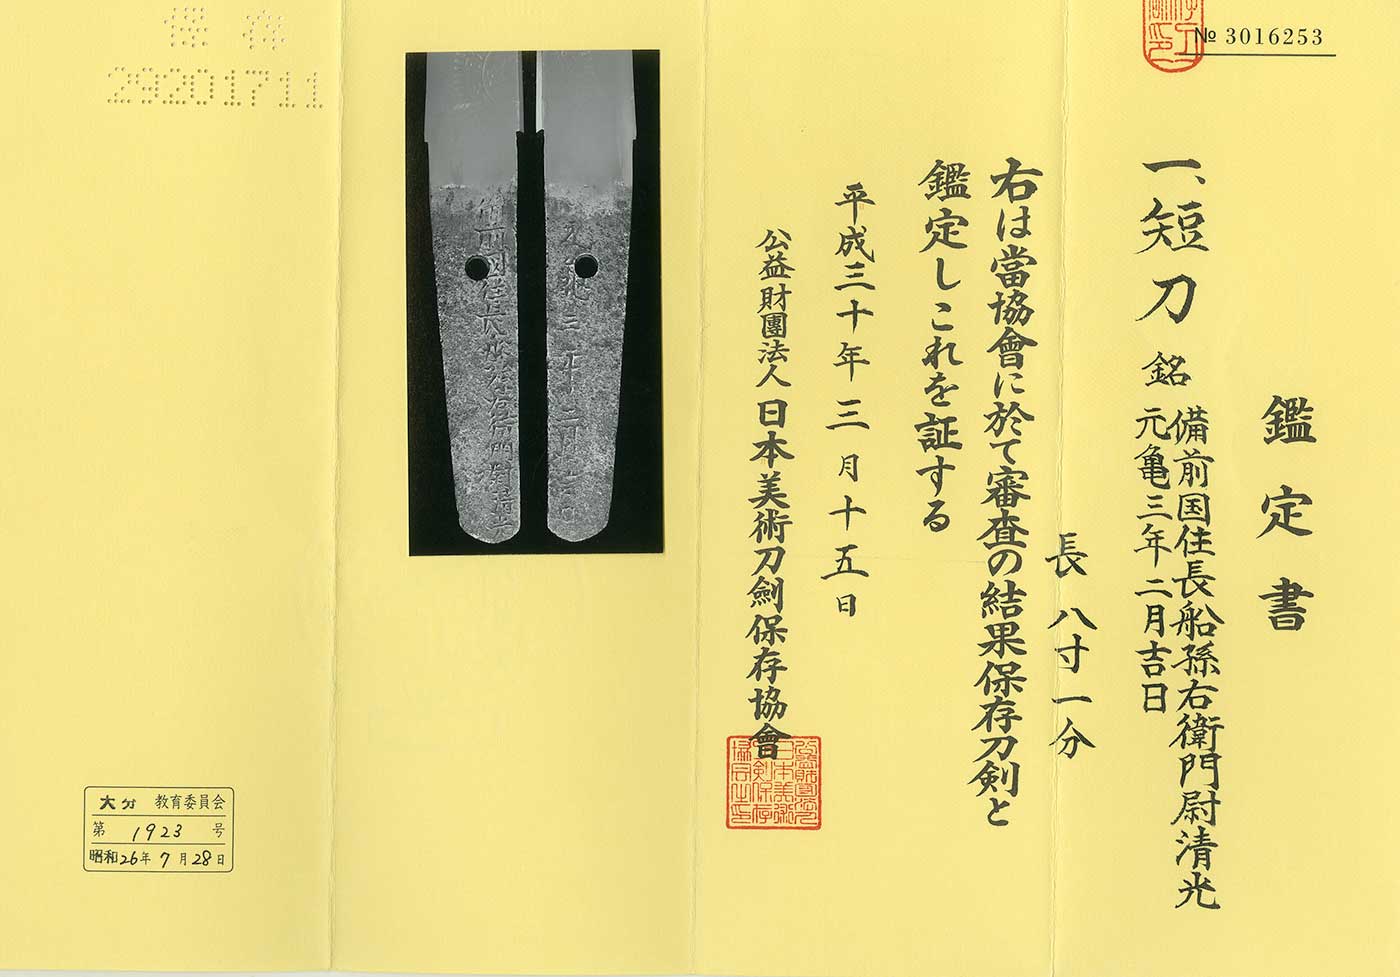 № 3016253
鑑定書
一、短刀 銘 備前国住長船孫右衛門尉清光
元亀三年二月吉日
長 八寸一分
右は當協會に於て審査の結果保存刀剣と
鑑定しこれを証する
平成三十年三月十五日
公益財團法人日本美術刀劍保存協會
備前国住長船孫右衛門尉清光
元亀三年二月吉日
保存
29201711
大分 教育委員会
第 1923 号
昭和26年7月28日